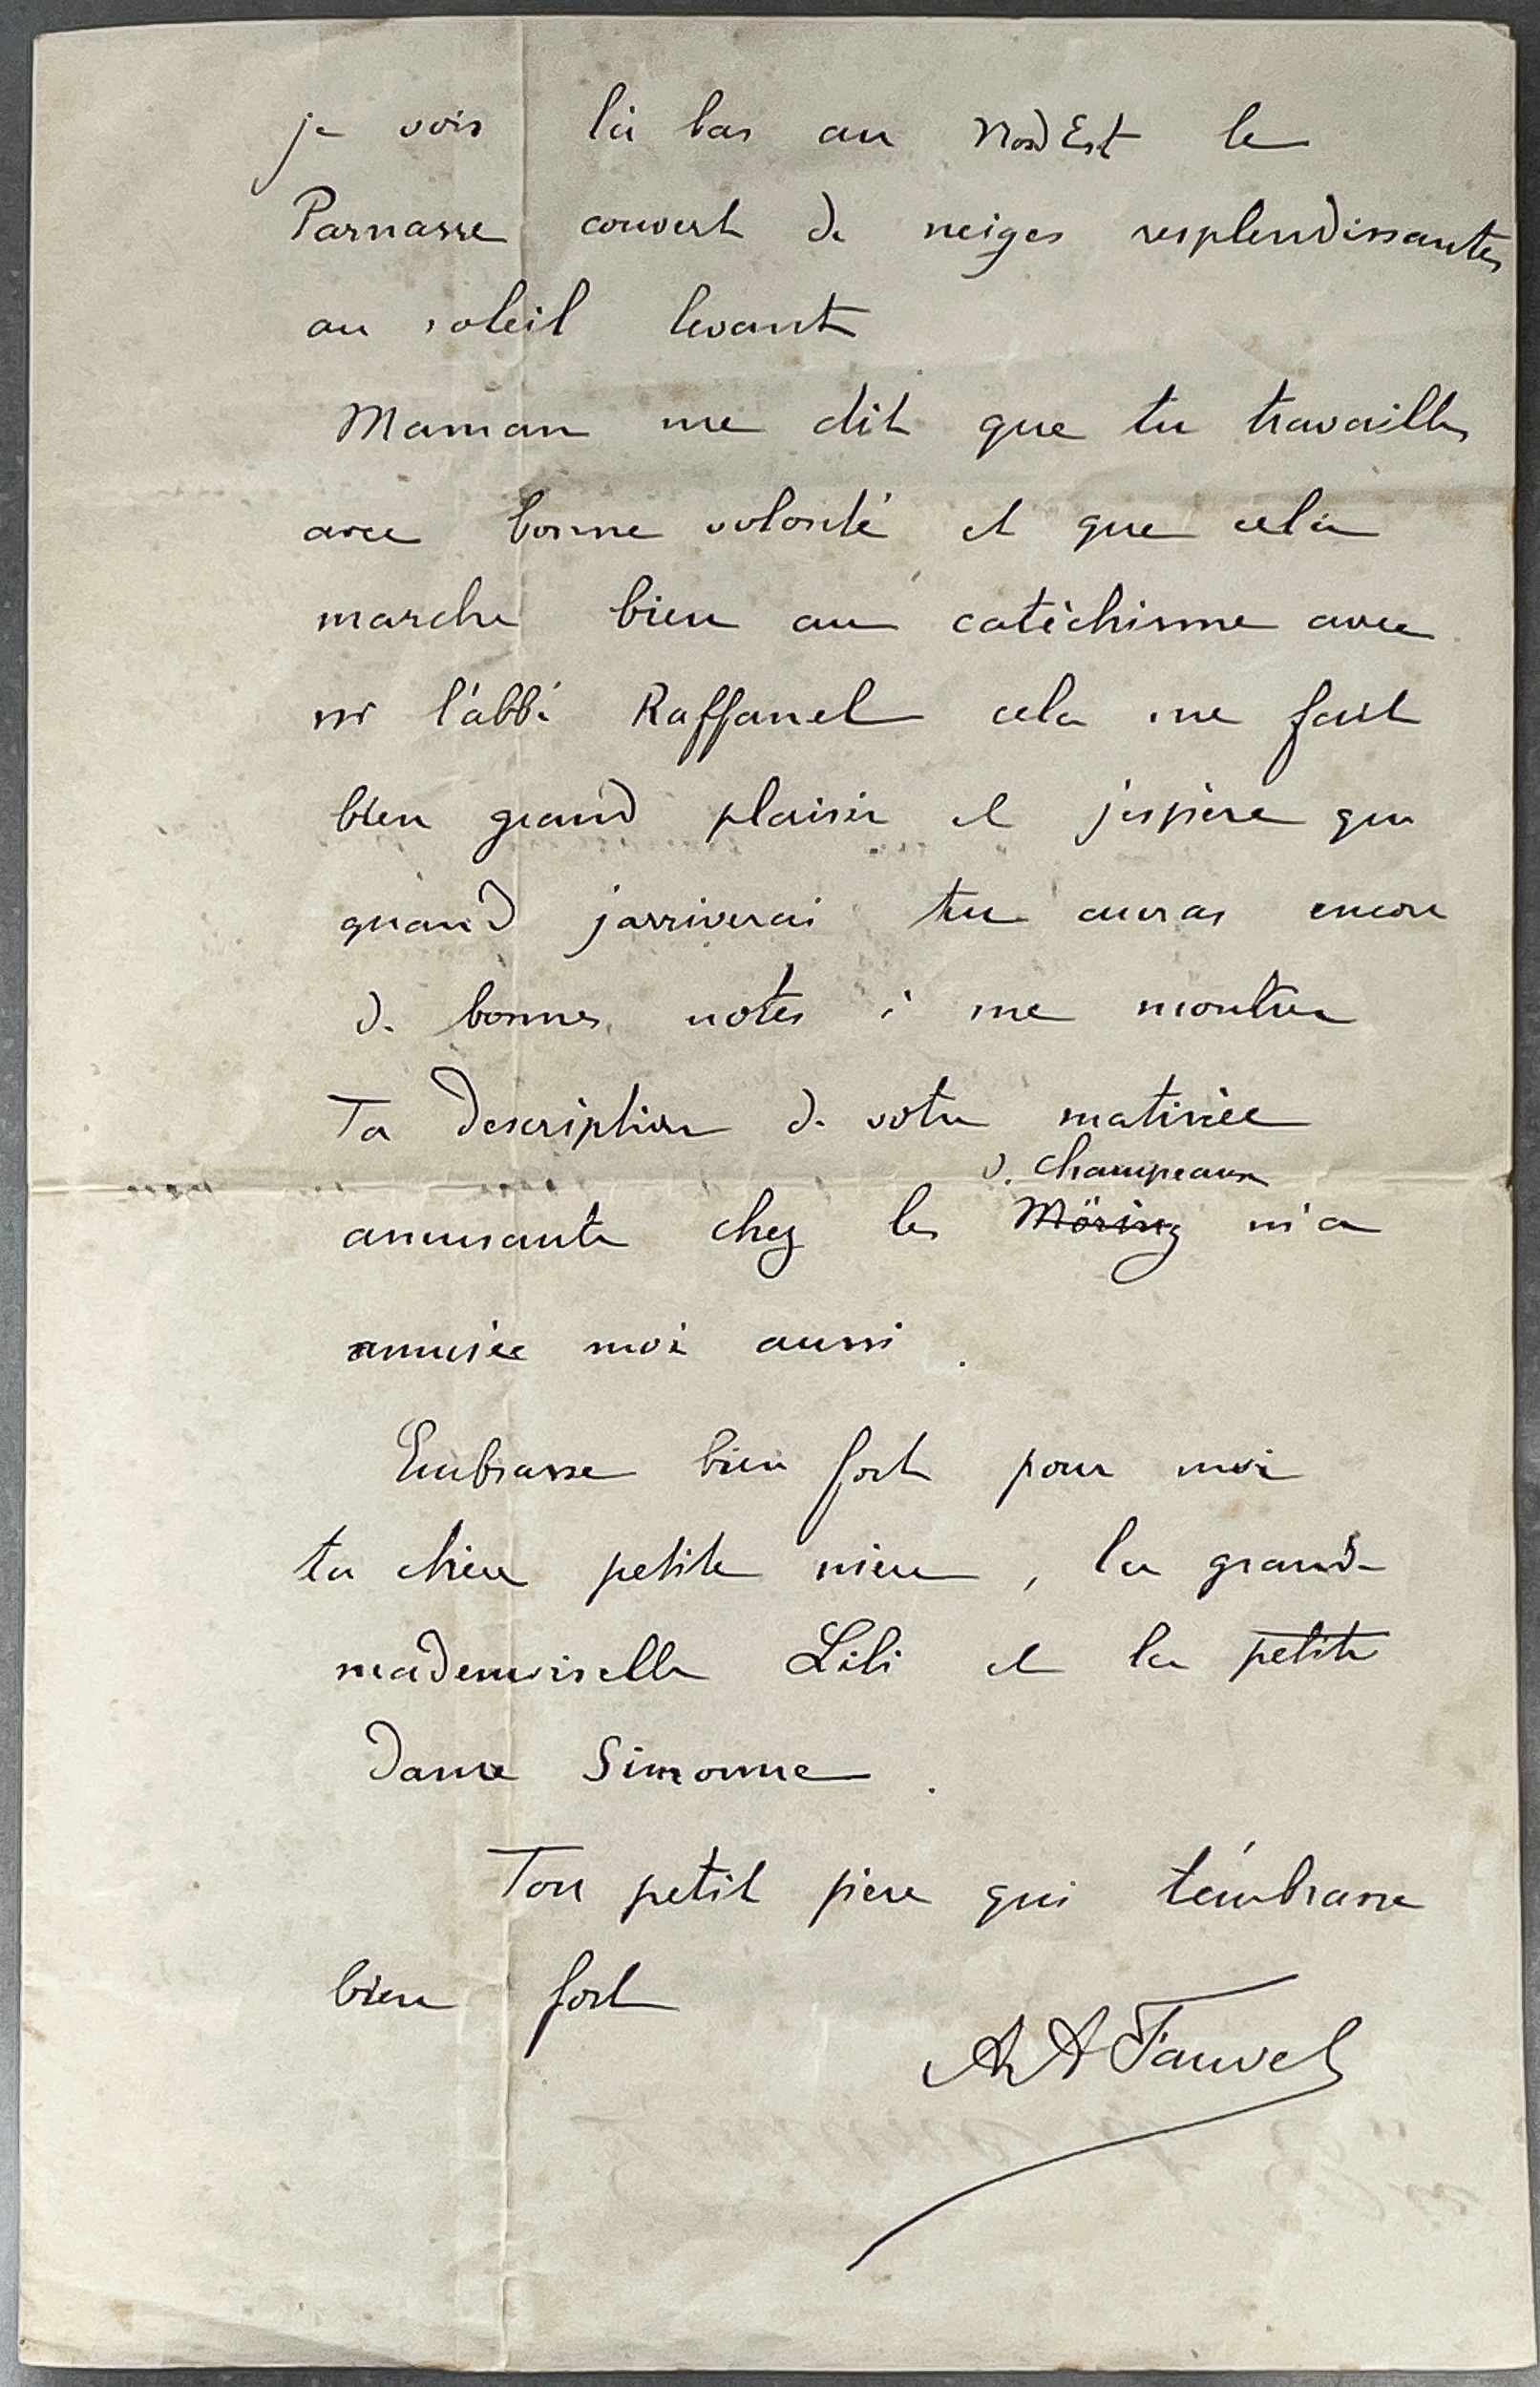 je vois là bas au Nord Est le
Parnasse couvert de neiges resplendissantes
au soleil levant
Maman me dit que tu travailles
avec bonne volonté et que cela
marche bien au catéchisme avec
mr l'abbé Raffanel cela me fait
bien grand plaisir et j'espère que
quand j'arriverai tu auras encore
de bonnes notes à me montrer
Ta description de votre matinée
d. Champeaux
amusante chez les Möring m'a
amusée moi aussi.
Embrasse bien fort pour moi
ta chère petite mère, la grande
mademoiselle Lili et la petite
dame Simonne.
Ton petit père qui t'embrasse
bien fort
AA Fauvel